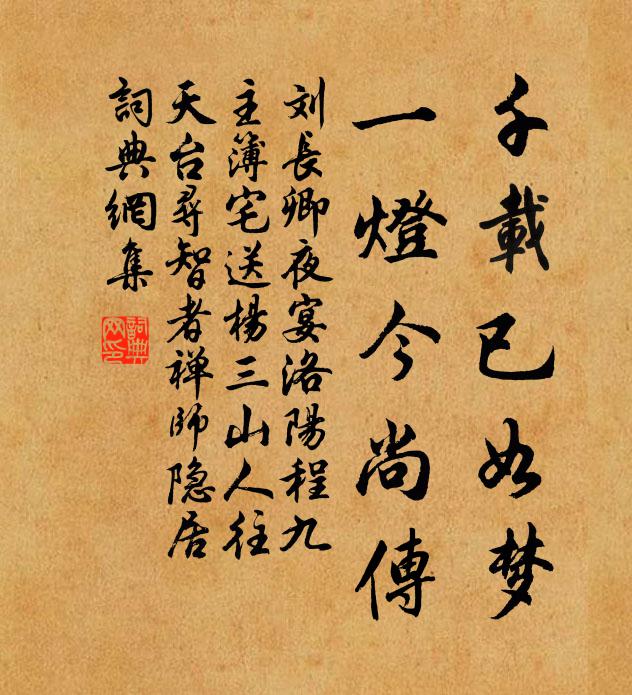 千載已如梦
一燈今尚傳
刘長卿夜宴洛陽程九
主簿宅送楊三山人往
天台尋智者禅師隐居
詞典網集
詞典網印